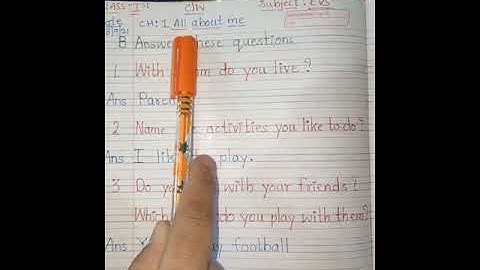 CLASS-Ist C/W Subject: EVS
Date CH:1 All about me
B Answer these questions
1. With do you live?
Ans Paren
2 Name activities you like to do?
Ans I like play.
3 Do you with your friends?
Which do you play with them?
Ans Y football